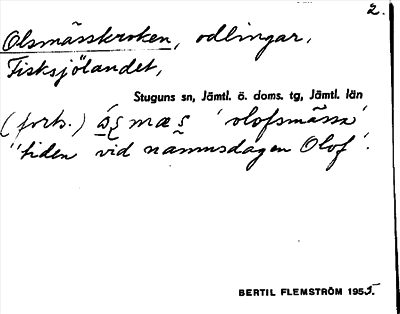 2.
Olsmässkroken, odlingar,
Fisksjölandet,
Stuguns sn, Jämtl. ö. doms. tg, Jämtl. län
(forts.) 'olofsmässa'
"tiden vid namnsdagen Olof".
BERTIL FLEMSTRÖM 1955.